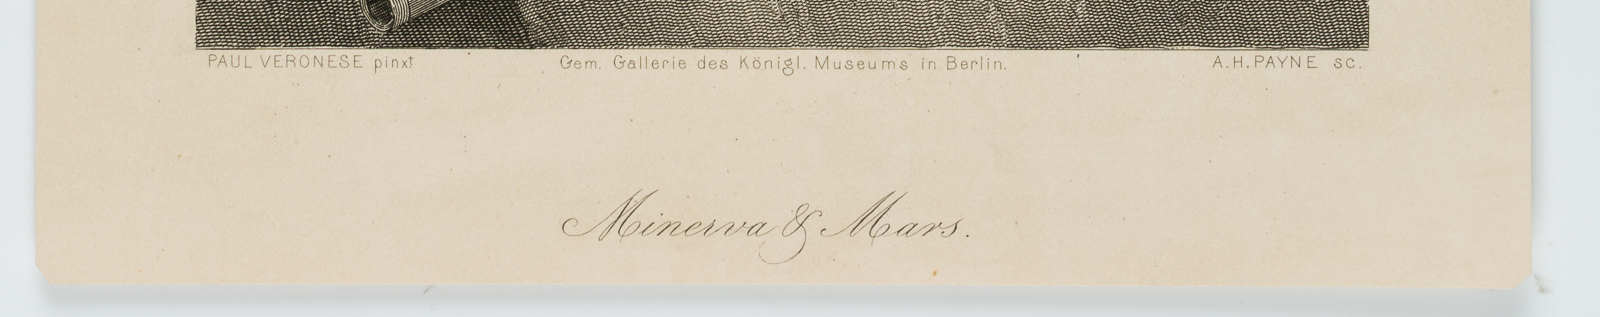 PAUL VERONESE pinxt Gem. Gallerie des Königl. Museums in Berlin. A.H. PAYNE sc.
Minerva & Mars.